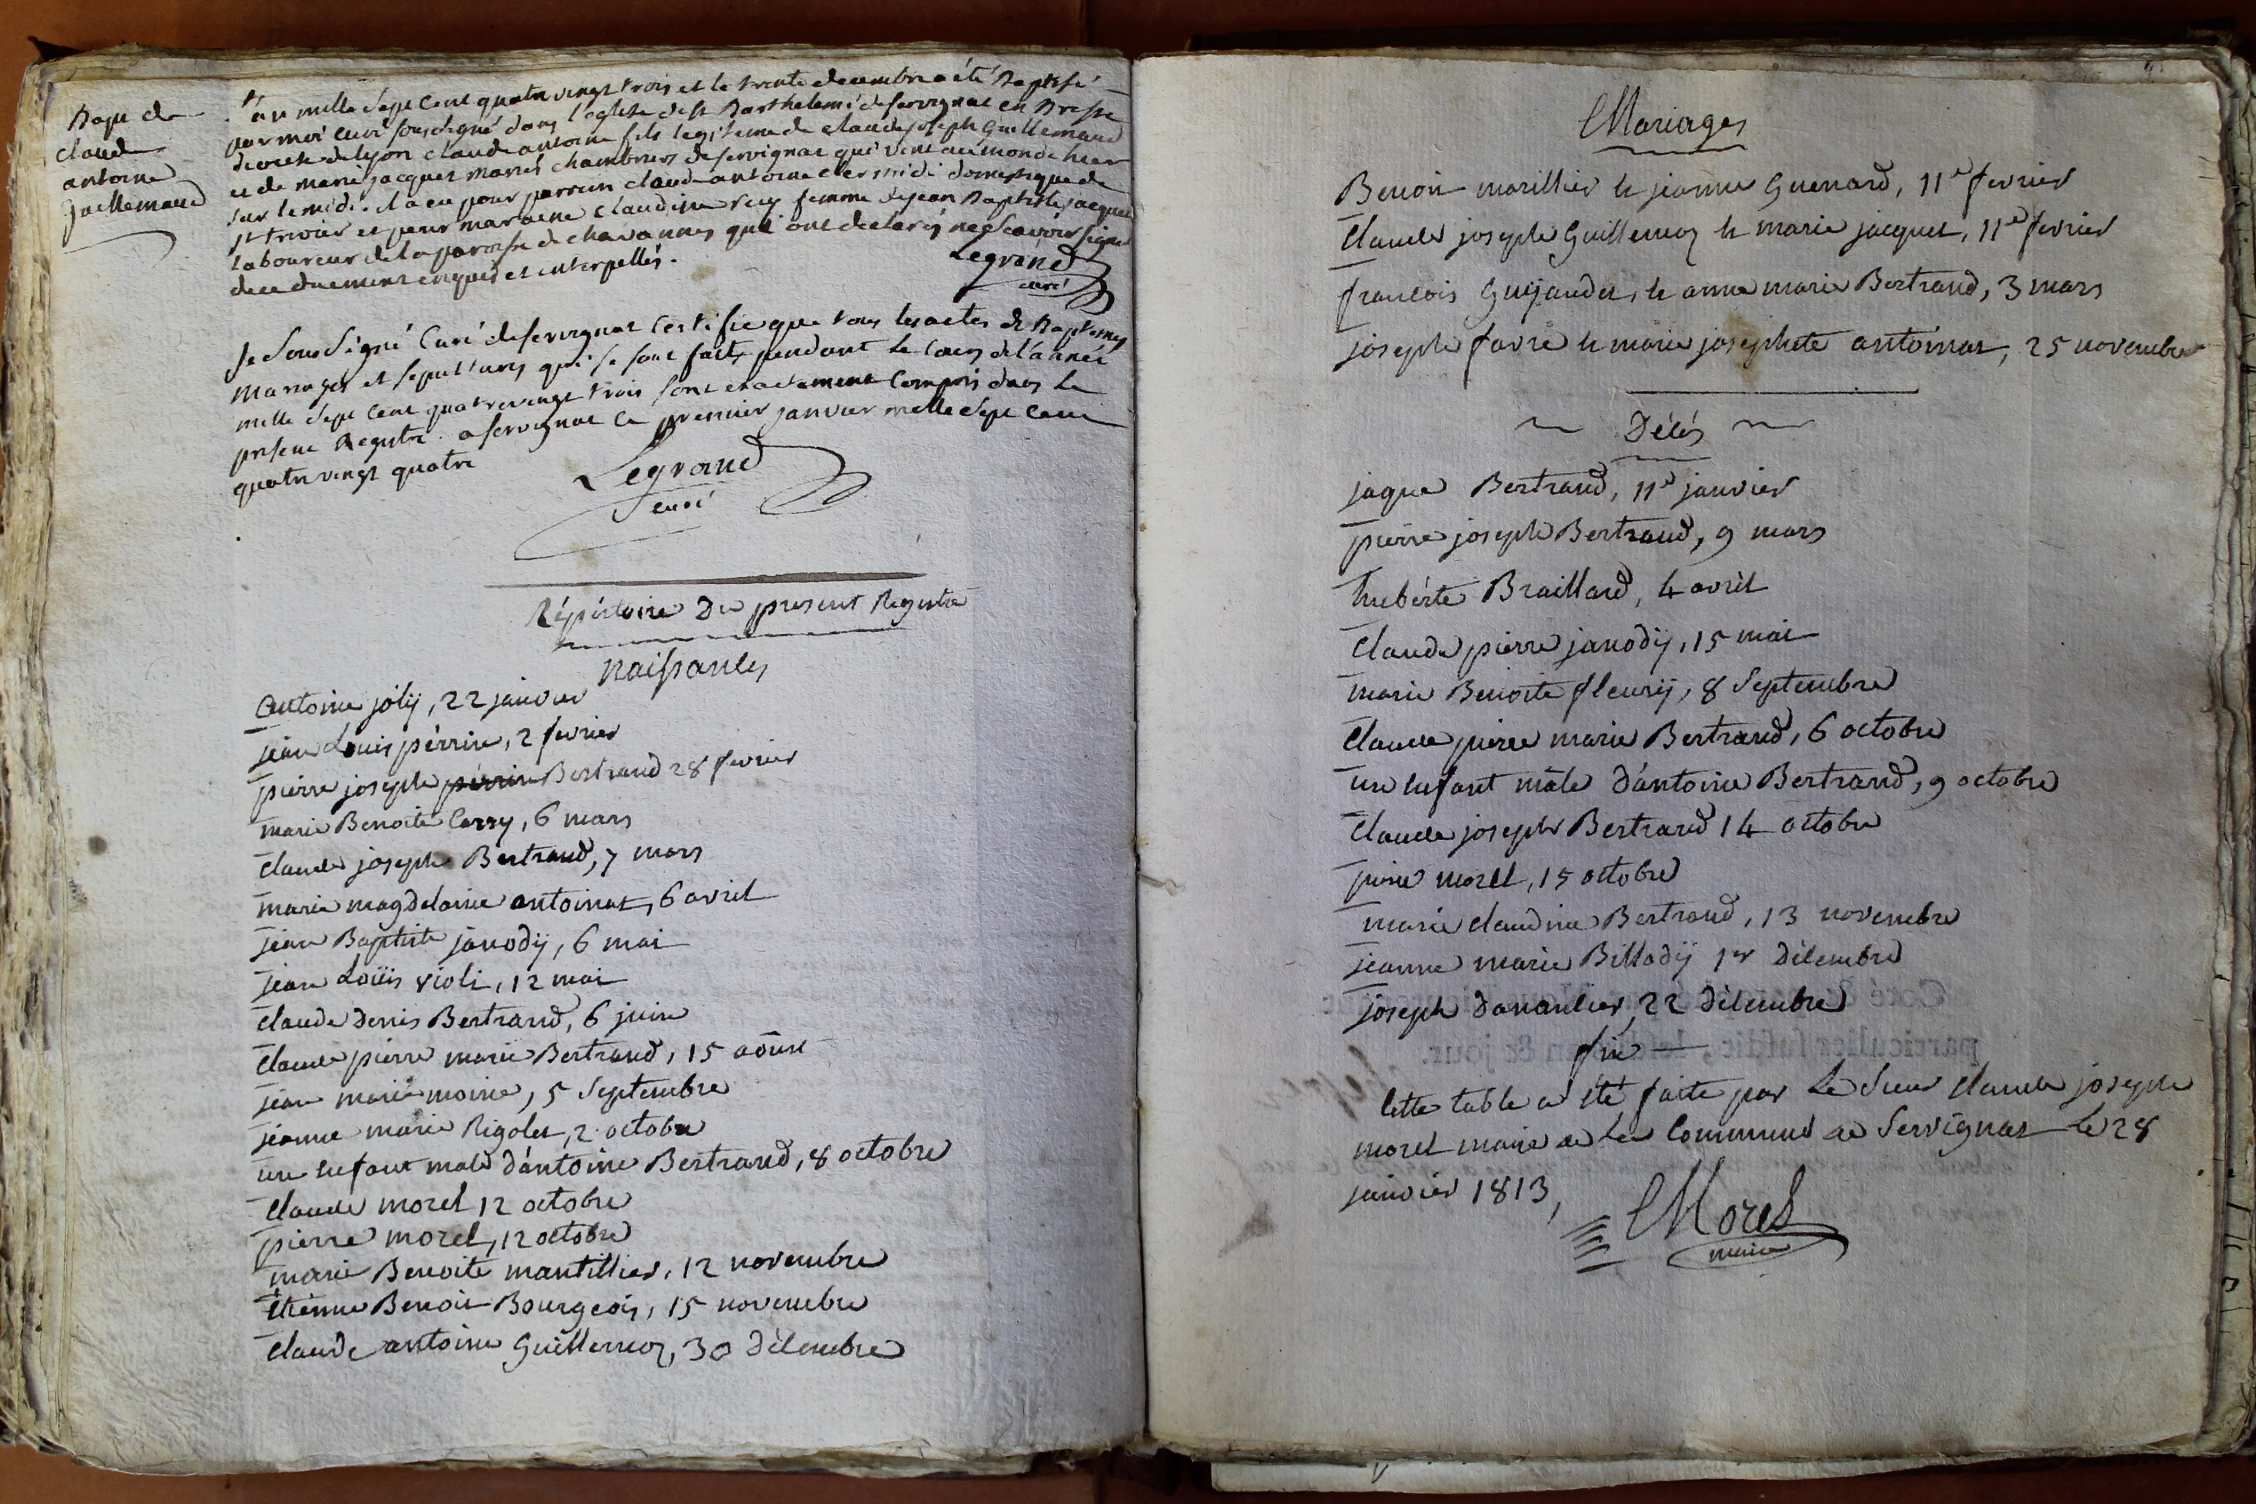 Bapt de
claude
antoine
Guillemaud
l'an mille sept cent quatre vingt trois et le trente decembre a été Baptisé
par moi curé soussigné dans l'eglise de st Barthelemi de servignat en Bresse
diocese de lyon claude antoine fils legitime de claude joseph Guillemaud
et de marie jacquet mariés chambriers de servignat qui vint au monde hier
sur le midi. il a eu pour parrain claude antoine clermidi domestique de
st trivier et pour marraine claudine femme de jean Baptiste jacquet
laboureur de la paroisse de chavannes qui ont declarés ne scavoir signer
de ce duement enquis et interpellés.
Legrand
curé
Je Sous Signé Curé de servignat Certifie que tous les actes de Baptemes
mariages et sepultures qui se sont faits pendant le cours de l'année
mille sept cent quatre vingt trois sont exactement compris dans le
present Registre. a servignat ce premier janvier mille sept cent
quatre vingt quatre
Legrand
curé
Répértoire Du present Registre
Naissances
antoine jolij, 22 janvier
jean Louis pérrin, 2 fevrier
pierre joseph perrin Bertrand 28 fevrier
marie Benoite Carry, 6 mars
claude joseph Bertrand, 7 mars
marie magdelaine antoinat, 6 avril
jean Baptiste janodij, 6 mai
jean Loüis violi, 12 mai
claude Denis Bertrand, 6 juin
claude pierre marie Bertrand, 15 aôust
jean marie moine, 5 Septembre
jeanne marie Rigolet, 2 octobre
un enfant male d'antoine Bertrand, 8 octobre
claude morel 12 octobre
pierre morel, 12 octobre
marie Benoite mantillier, 12 novembre
étienne Benoit Bourgeois, 15 novembre
claude antoine Guillemoz, 30 Décembre
Mariages
Benoit marillier et jeanne Guenard, 11e fevrier
Claude joseph Guillemoz et marie jacquet, 11e fevrier
françois Gujaudet, et anne marie Bertrand, 3 mars
joseph favre et marie josephete antoinat, 25 novembre
Décés
jaque Bertrand, 11e janvier
pierre joseph Bertrand, 9 mars
huberte Braillard, 4 avril
Claude pierre janodij, 15 mai
marie Benoite fleurij, 8 Septembre
Claude pierre marie Bertrand, 6 octobre
un enfant mâle d'antoine Bertrand, 9 octobre
Claude joseph Bertrand 14 octobre
pierre morel, 15 octobre
marie claudine Bertrand, 13 novembre
jeanne marie Billodij 1er Décembre
joseph Dananlier, 22 Décembre
fin
Cette table a été faite par Le Sieur Claude joseph
morel maire de La Commune de Servignat le 28
janvier 1813,
Morel
maire